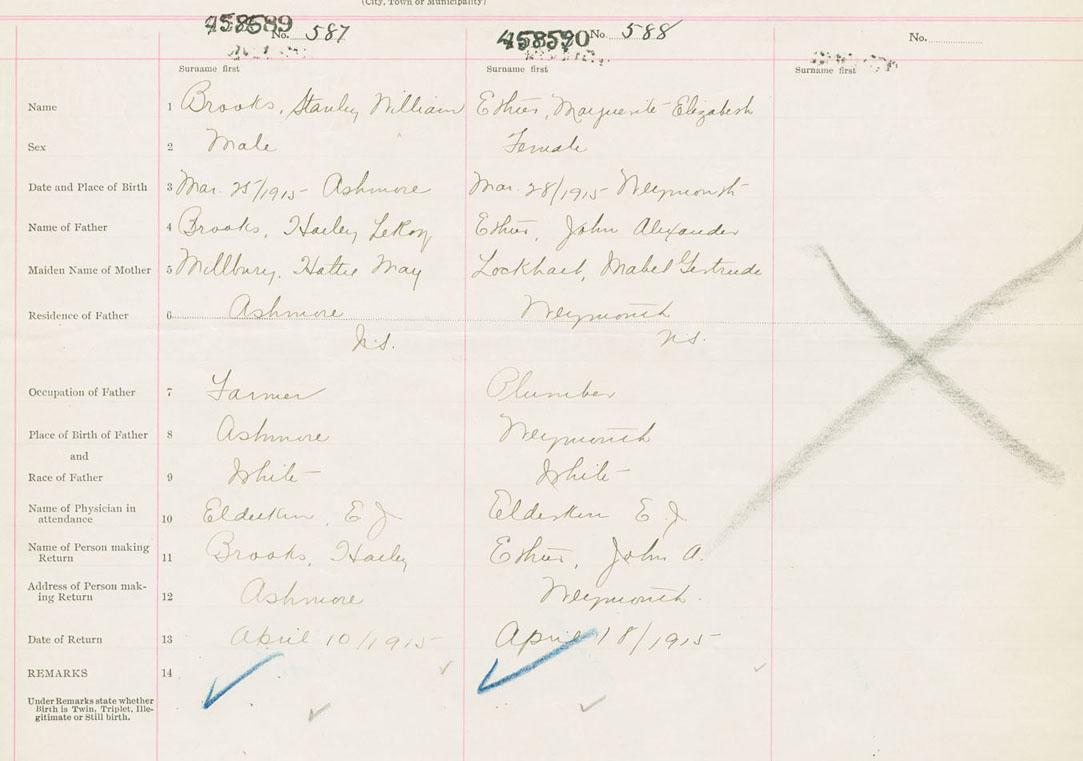 (City, Town or Municipality)
458589 No. 587
458590 No. 588
No.
Surname first
Surname first
Surname first
Name 1 Brooks, Stanley William Marguerite Elizabeth
Sex 2 Male Female
Date and Place of Birth 3 Mar. 25/1915 Ashmore Mar. 28/1915 Weymouth
Name of Father 4 Brooks, Harley LeRoy John Alexander
Maiden Name of Mother 5 Millbury, Hattie May Lockhart, Mabel Gertrude
Residence of Father 6 Ashmore Weymouth
N.S. N.S.
Occupation of Father 7 Farmer Plumber
Place of Birth of Father 8 Ashmore Weymouth
and
Race of Father 9 White White
Name of Physician in
attendance 10 Elderkin, E J Elderkin E J.
Name of Person making
Return 11 Brooks, Harley John A.
Address of Person mak-
ing Return 12 Ashmore Weymouth.
Date of Return 13 April 10/1915 April 18/1915
REMARKS 14
Under Remarks state whether
Birth is Twin, Triplet, Ille-
gitimate or Still birth.